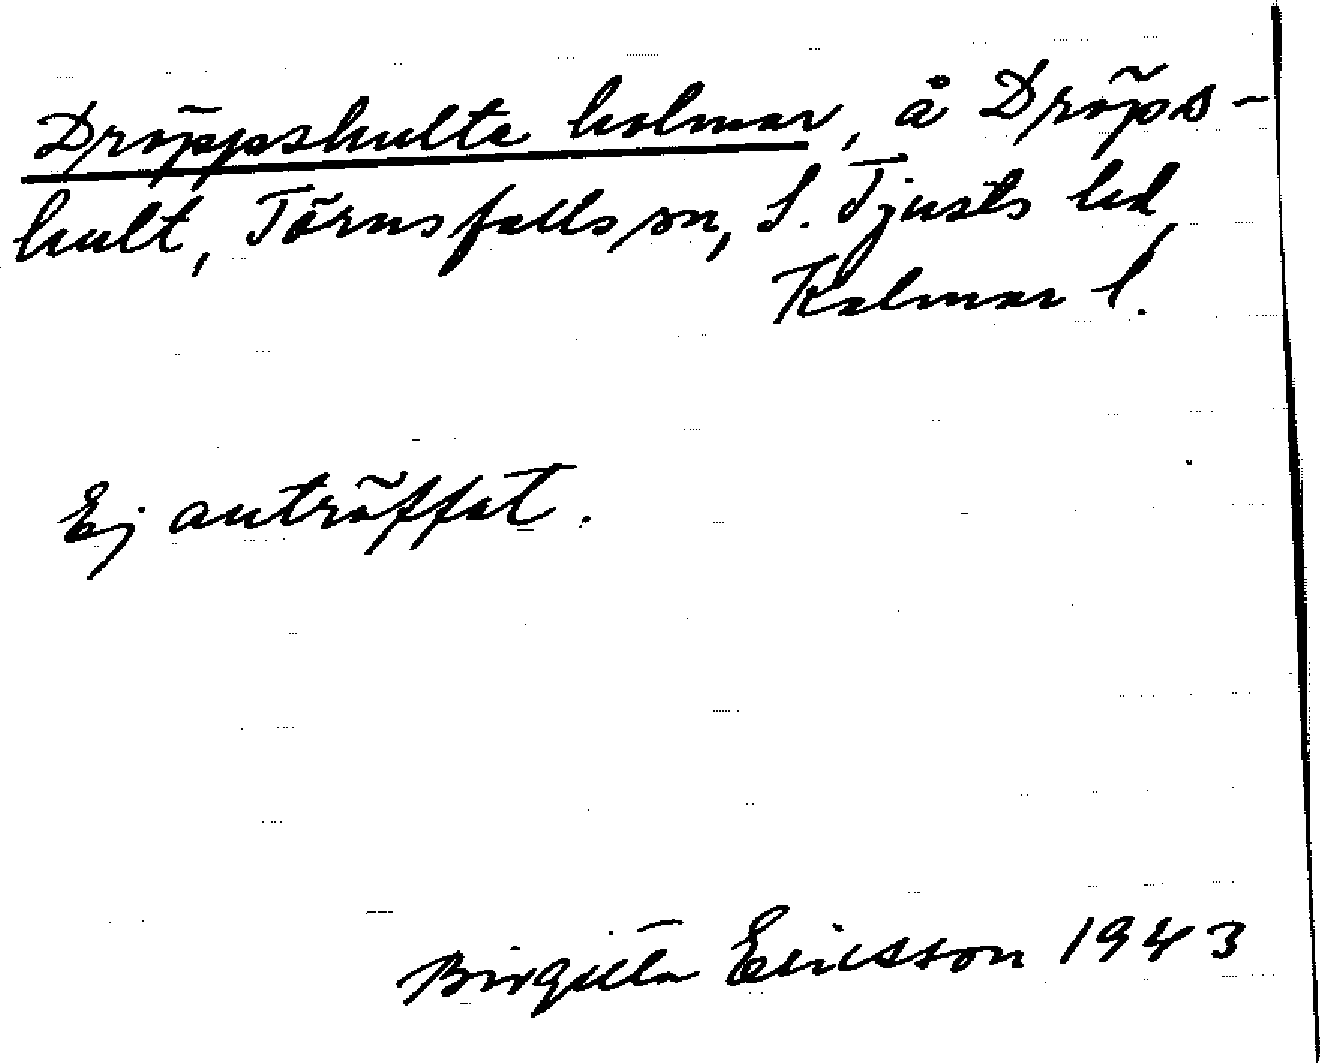 Dröppshulte holmar, å Dröps-
hult, Törnsfalls sn, S. Tjusts hd
Kalmar l.
Ej anträffat.
Birgitta Ericsson 1943